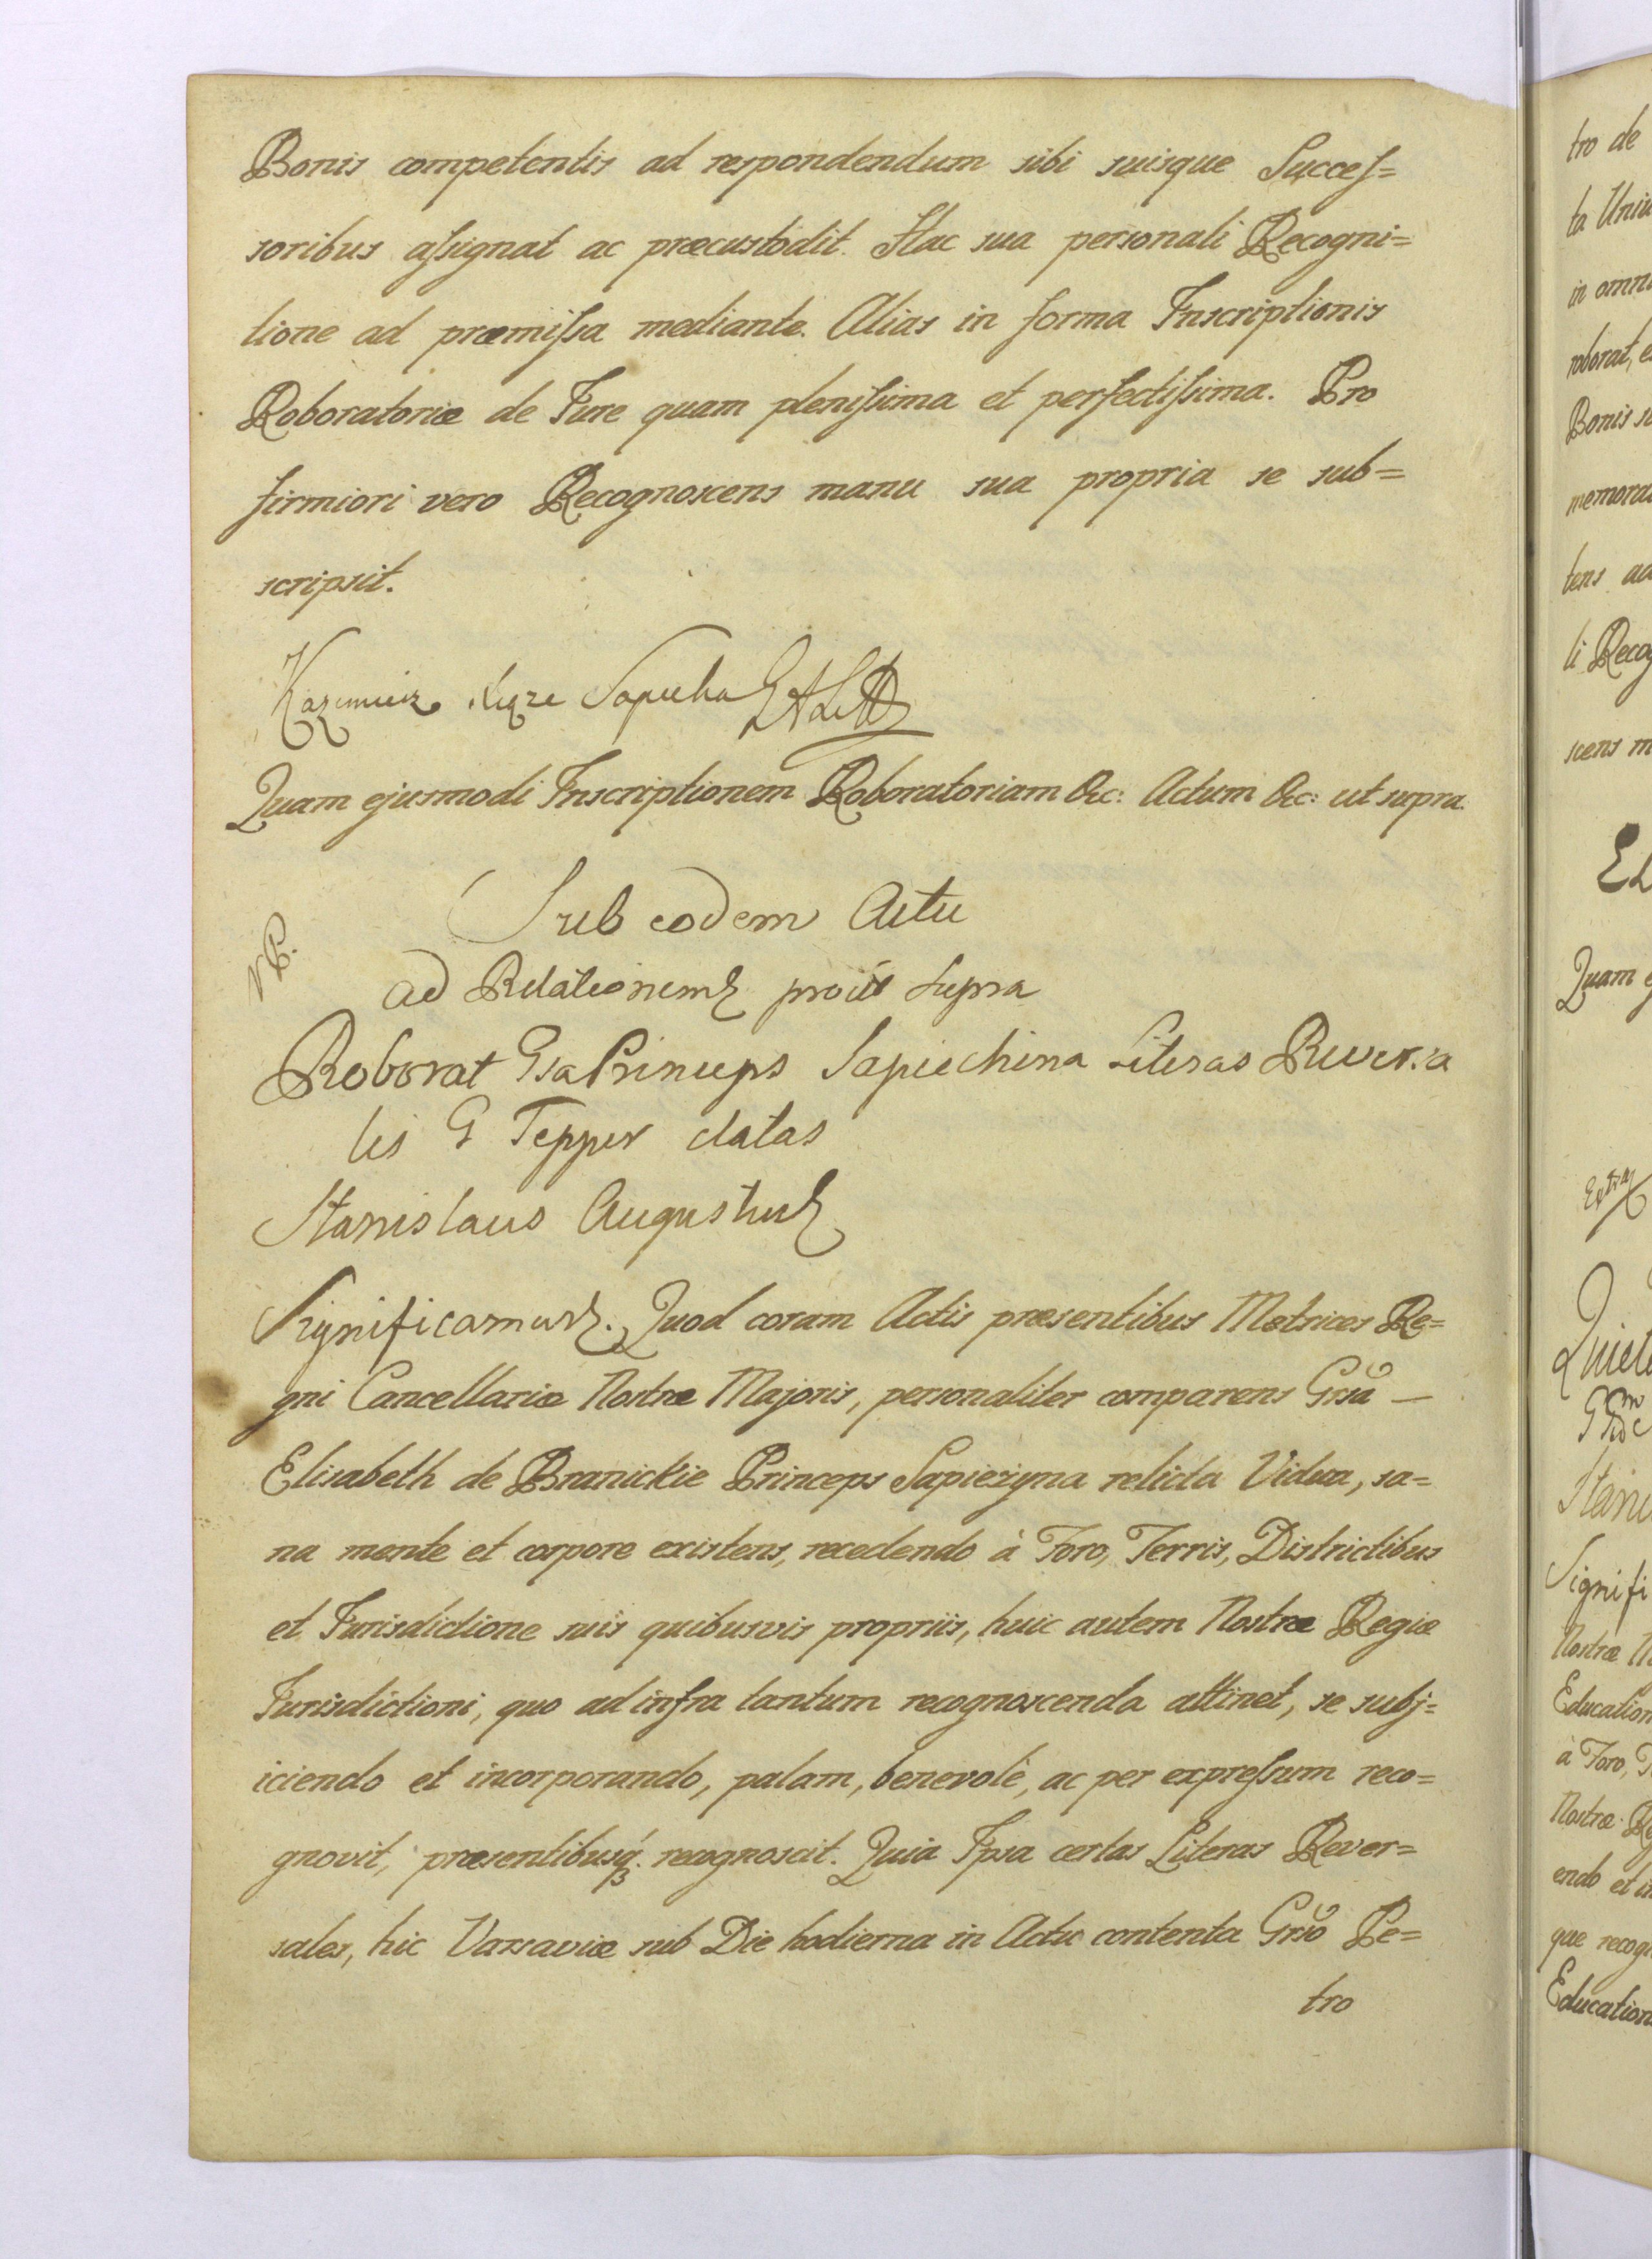 Bonis competentis ad respondendum sibi suisque Succeſ=
soribus aſsignat ac præcustodit. Hac sua personali Recogni=
tione ad præmiſsa mediante. Alias in forma Inscriptionis
Roboratoriæ de Jure quam pleniſsima et perfectiſsima. Pro
firmiori vero Recognoscens manu sua propria se sub=
scripsit.
Kazimierz Xiąże Sapieha
Quam ejusmodi Inscriptionem Roboratoriam &c: Actum &c: ut supra.
Sub eodem Actu
ad Relationem prout supra
Roborat Gsa Princeps Sapiechina Literas Reversa
les G Tepper datas
Stanislaus Augustus
Significamus. Quod coram Actis præsentibus Metrices Re=
gni Cancellariæ Nostræ Majoris, personaliter comparens Grsa —
Elisabeth de Branickie Princeps Sapiezyna relicta Vidua, sa=
na mente et corpore existens, recedendo à Foro, Terris, Districtibus
et Jurisdictione suis quibusvis propriis, huic autem Nostræ Regiæ
Jurisdictioni, quo ad infra tantum recognoscenda attinet, se subj=
iciendo et incorporando, palam, benevolè, ac per expreſsum reco=
gnovit, præsentibusq. recognoscit. Quia Ipsa certas Literas Rever=
sales, hic Varsaviæ sub Die hodierna in Actu contenta Grso Pe=
tro
tro de
ta Univ
in omni
roborat, e
Bonis su
memora
tens ad
li Recog
scens m
Quam ej
Extra
Quiet
Stani
Signifi
Nostræ M
Education
à Foro, T
Nostræ Re
endo et in
que recog
Education